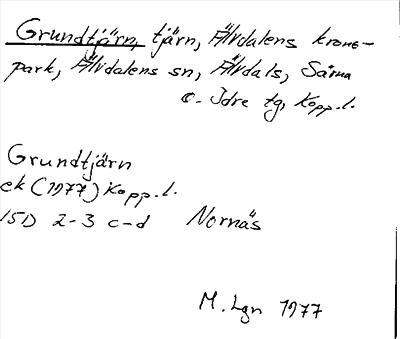 Grundtjärn, tjärn, Älvdalens krono-
park, Älvdalens sn, Älvdals, Särna
o. Idre tg, Kopp.l.
Grundtjärn
ek (1977) Kopp.l.
15D 2-3 c-d Nornäs
M. Lgn 1977